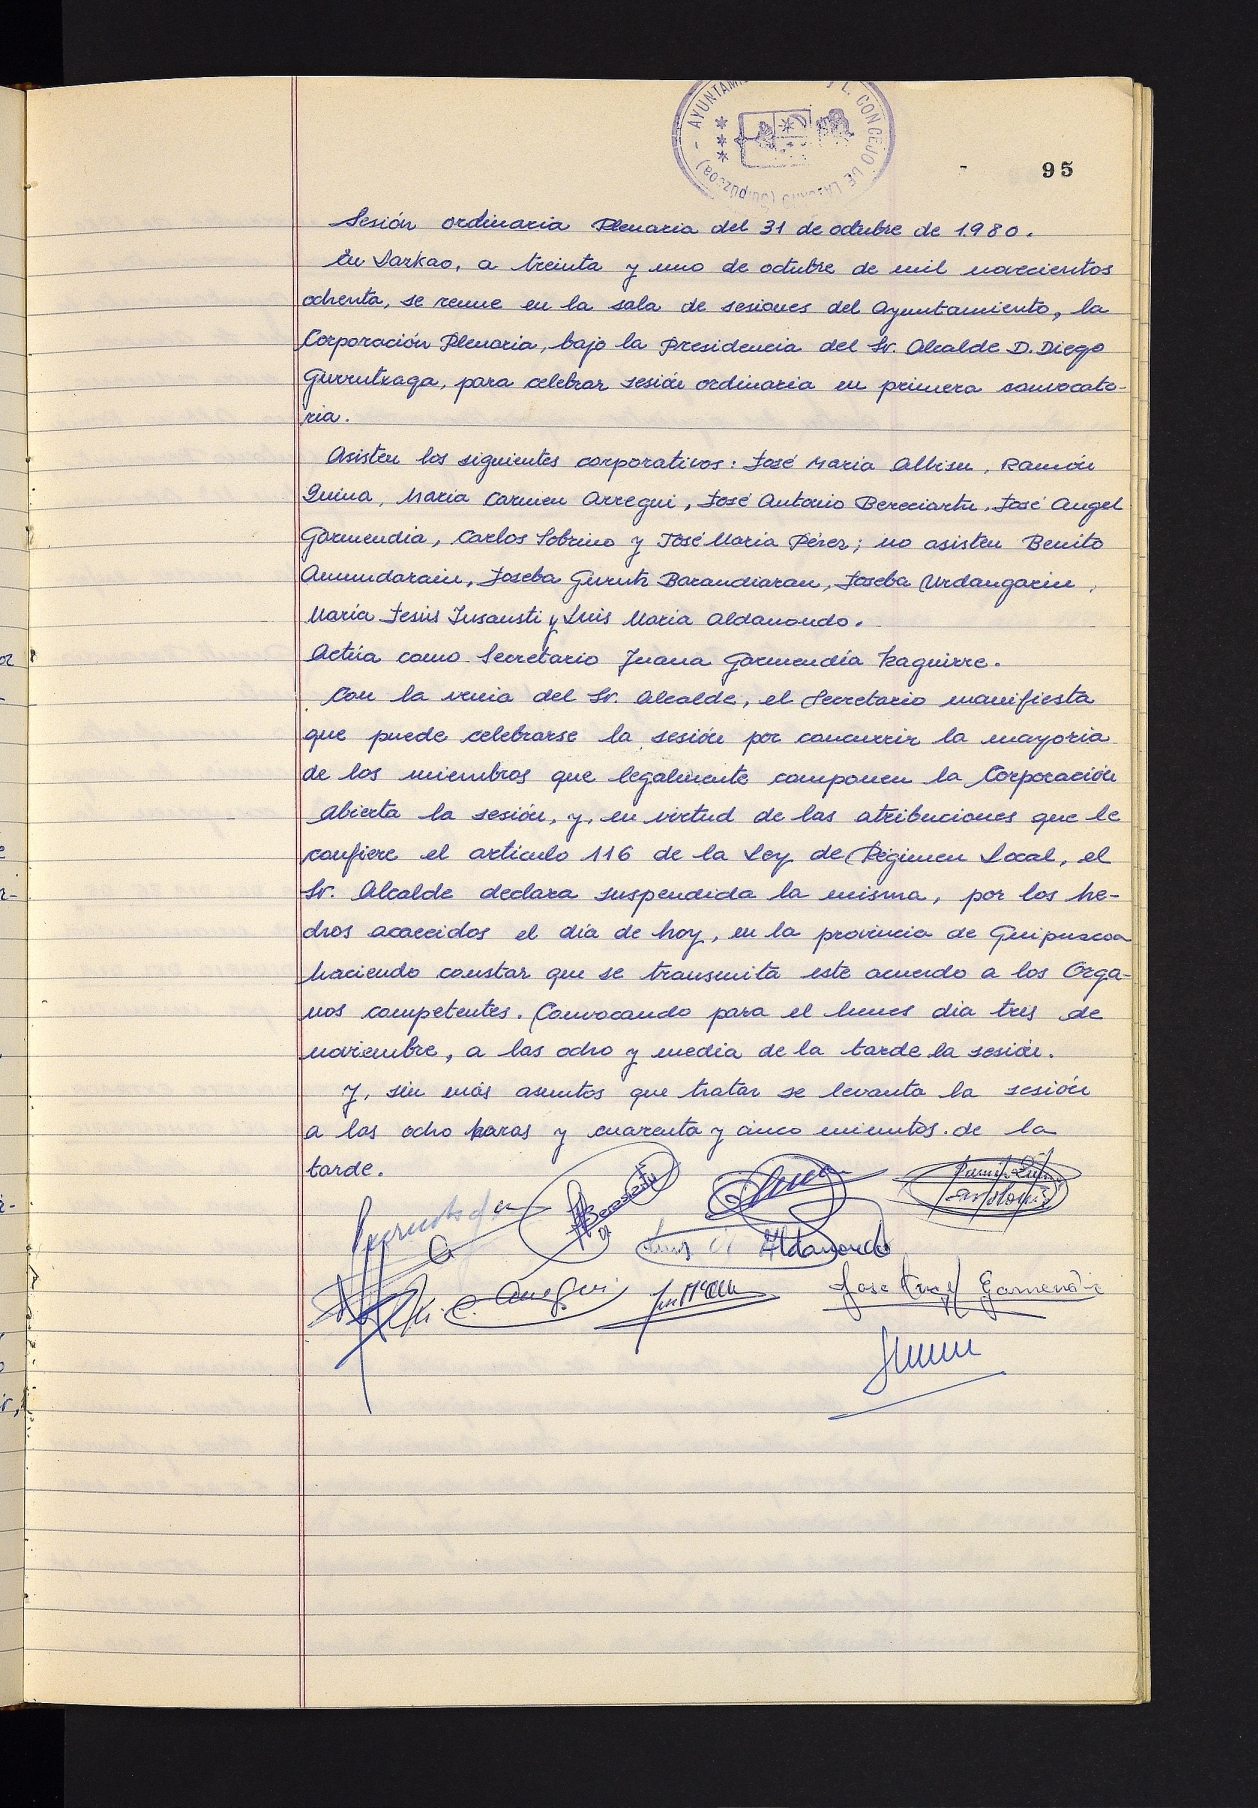 - AYUNTAMI Y L. CONCEJO DE LAZCANO (Guipúzcoa)
95
Sesión ordinaria Plenaria del 31 de octubre de 1.980.
En Lazkao, a treinta y uno de octubre de mil novecientos
ochenta, se reune en la sala de sesiones del Ayuntamiento, la
Corporación Plenaria, bajo la Presidencia del Sr. Alcalde D. Diego
Gurrutxaga, para celebrar sesión ordinaria en primera convocato-
ria.
Asisten los siguientes corporativos: José María Albisu, Ramón
Guina, María Carmen Arregui, José Antonio Bereciartu, José Angel
Garmendia, Carlos Sobrino y José María Pérez; no asisten Benito
Amundarain, Joseba Gurutz Barandiaran, Joseba Urdangarin,
María Jesús Insausti y Luis María Aldanondo.
Actúa como Secretario Juana Garmendia Izaguirre.
Con la venia del Sr. Alcalde, el Secretario manifiesta
que puede celebrarse la sesión por concurrir la mayoria
de los miembros que legalmente componen la Corporación
Abierta la sesión, y, en virtud de las atribuciones que le
confiere el artículo 116 de la Ley de Régimen Local, el
Sr. Alcalde declara suspendida la misma, por los he-
chos acaecidos el día de hoy, en la provincia de Guipuzcoa
haciendo constar que se transmita este acuerdo a los Orga-
nos competentes. Convocando para el lunes día tres de
noviembre, a las ocho y media de la tarde la sesión.
Y, sin más asuntos que tratar se levanta la sesión
a las ocho horas y cuarenta y cinco minutos de la
tarde.
Bereciartu
Luis Mª Aldanondo
Mª C. Arregui
Jose Angel Garmendia